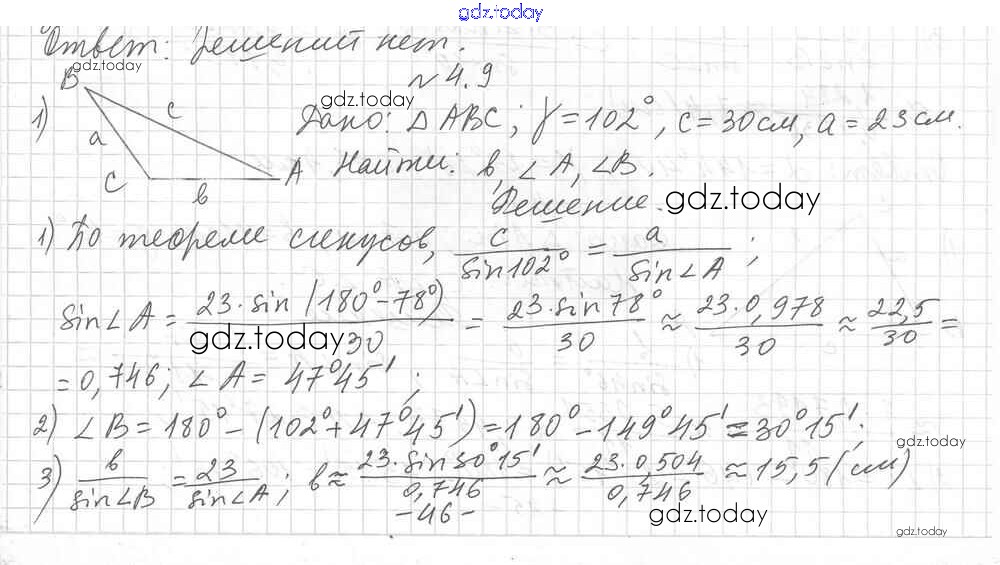 gdz.today
Ответ: решений нет.
gdz.today
№ 4.9
gdz.today
1)
B
a
c
C
b
A
Дано: △ABC; γ=102°, c=30см, a=23см.
Найти: b, ∠A, ∠B.
Решение.
gdz.today
1) По теореме синусов, c/sin102° = a/sin∠A ;
sin∠A = 23·sin(180°-78°)/30 = 23·sin78°/30 ≈ 23·0,978/30 ≈ 22,5/30 =
gdz.today
= 0,746; ∠A = 47°45' ;
2) ∠B = 180° - (102°+47°45') = 180° - 149°45' = 30°15' ;
gdz.today
3) b/sin∠B = 23/sin∠A ; b ≈ 23·sin30°15'/0,746 ≈ 23·0,504/0,746 ≈ 15,5 (см)
-46-
gdz.today
gdz.today